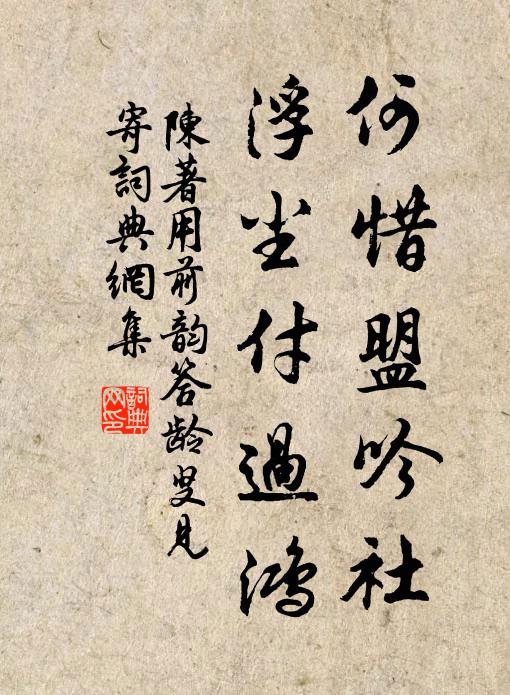 何惜盟吟社
浮尘付過鴻
陳著用前韵答龄叟見
寄詞典網集
詞典网印